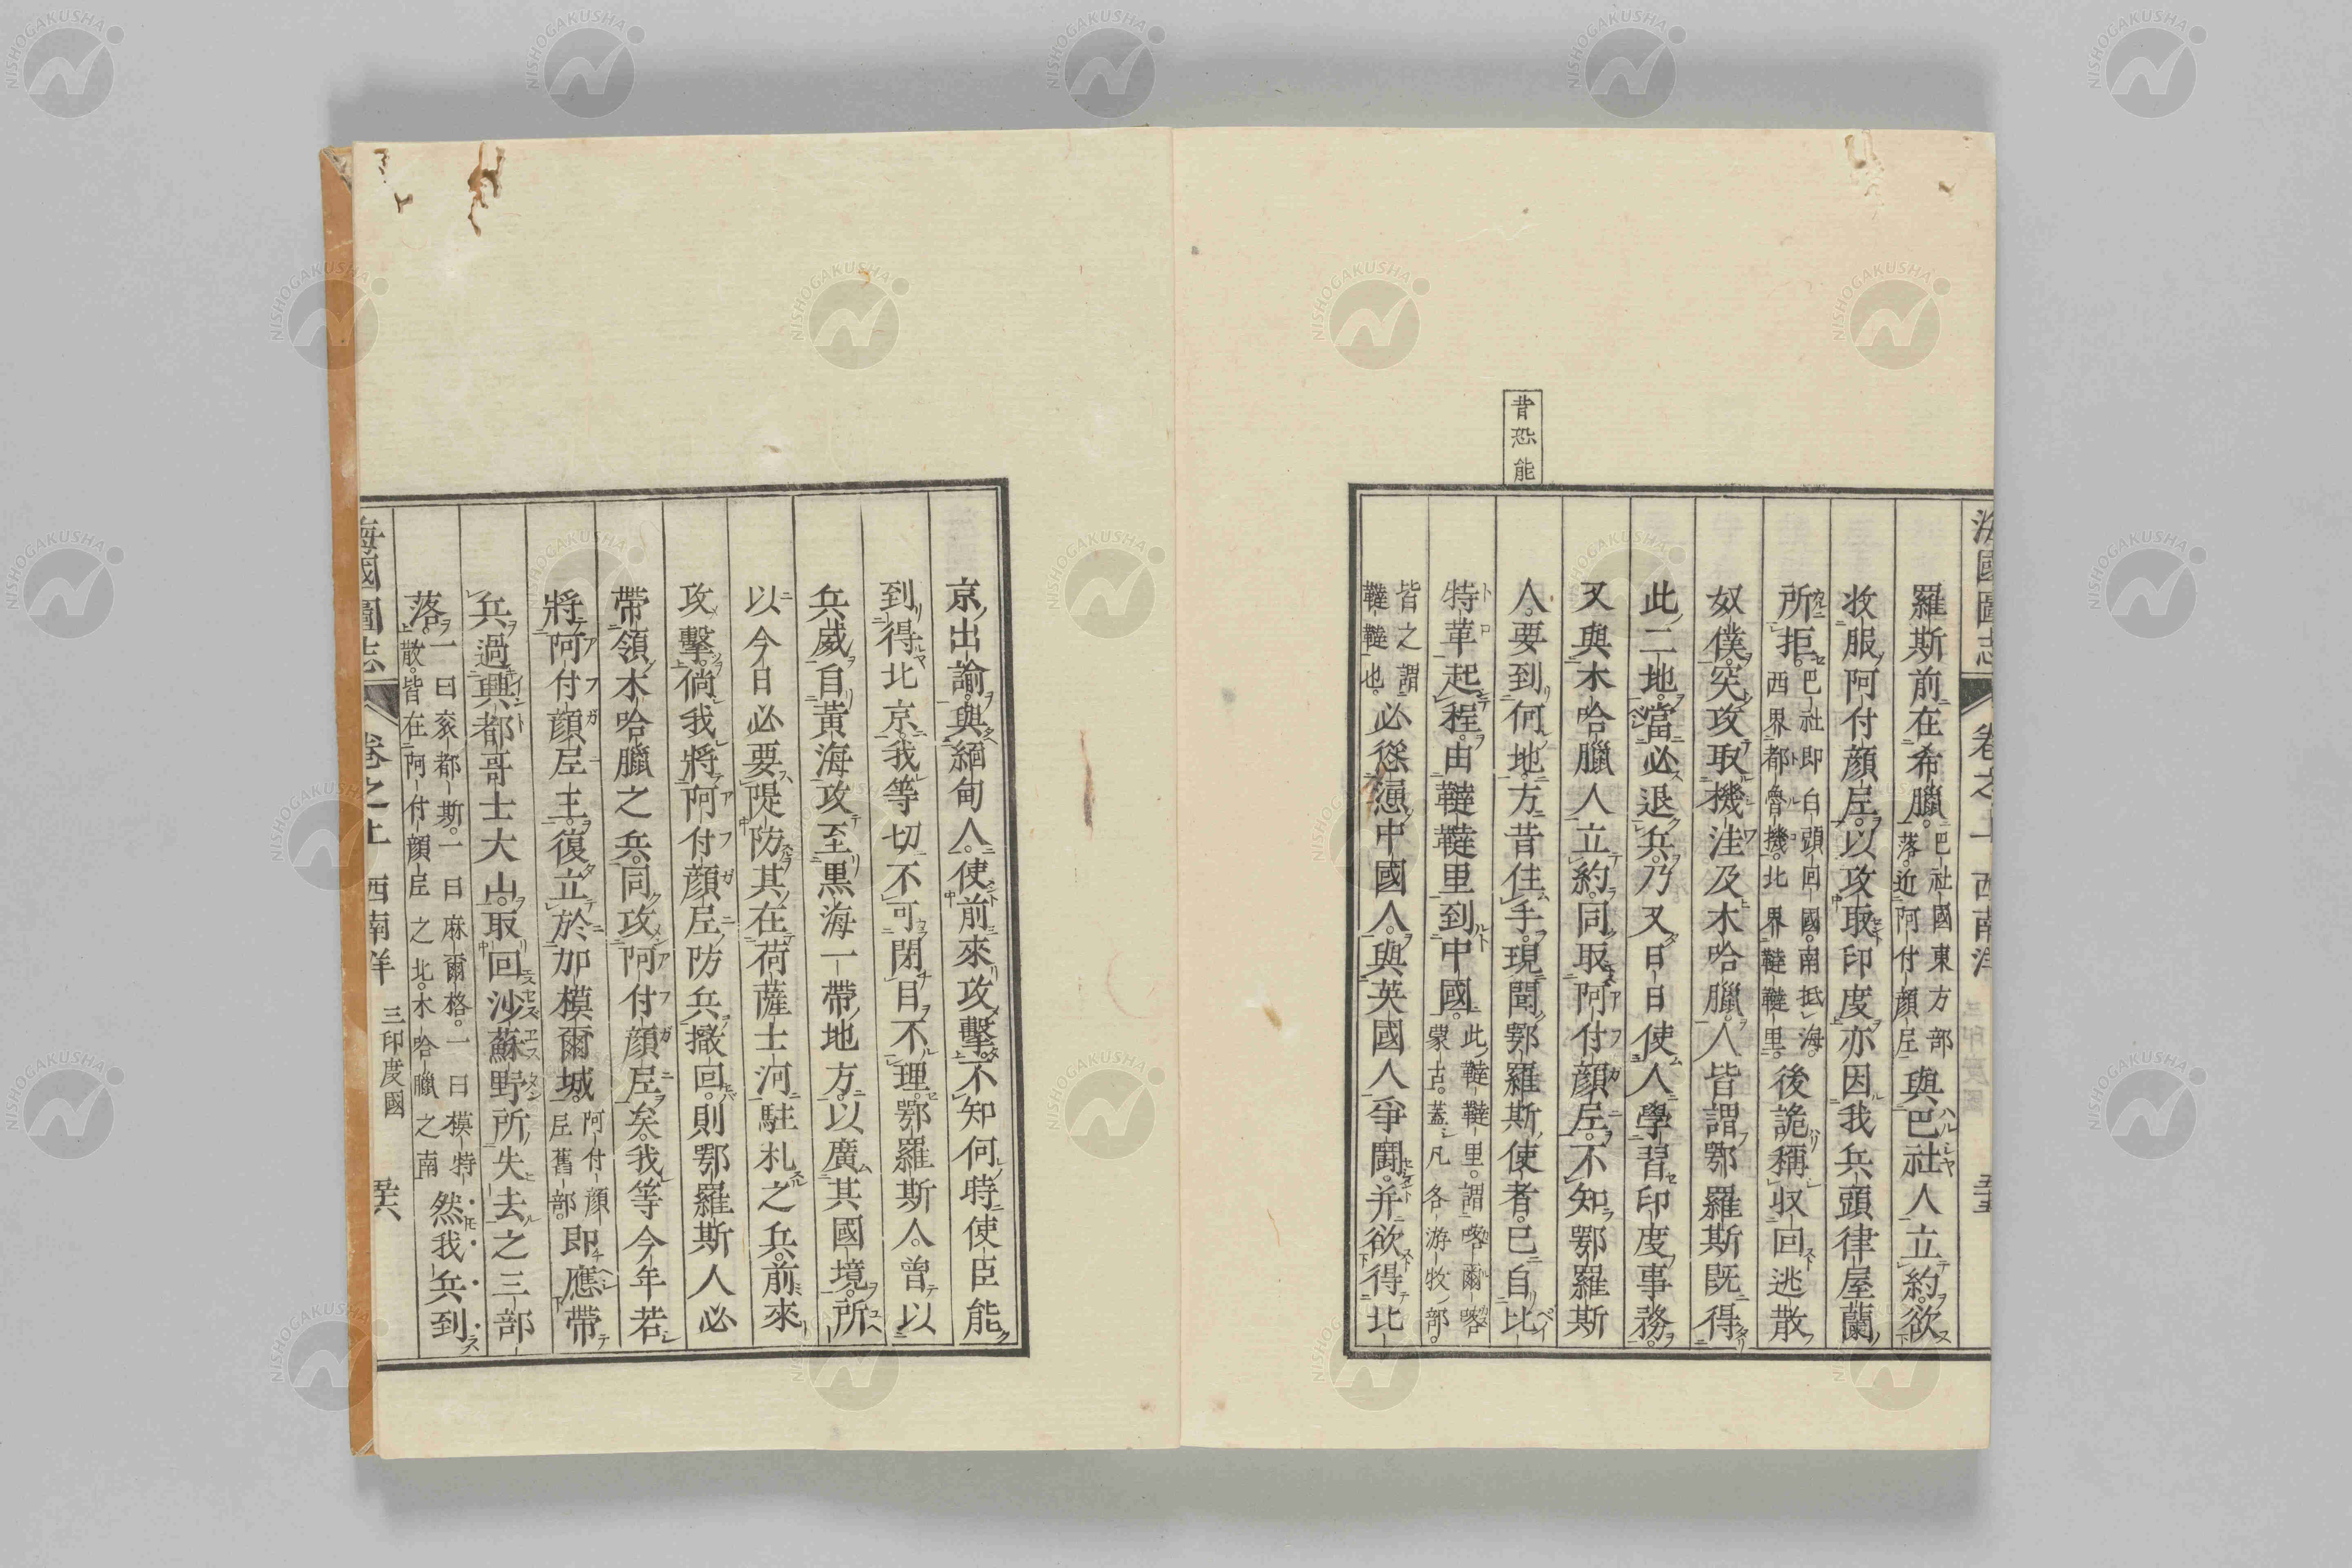 海國圖志 卷之上 西南洋 三印度國 五十五
羅斯前在希臘。巴社國東方部落。近阿付顏𡰱與巴社人立約。欲
收服阿付顏𡰱。以攻取印度。亦因我兵頭律屋蘭
所拒。巴社即白頭回國。南抵海。西界都魯機。北界韃韃里。後詭稱收回逃散
奴僕。突攻取機洼及木哈臘。人皆謂鄂羅斯既得
此二地。當必退兵。乃又日日使人學習印度事務。
又與木哈臘人立約。同取阿付顏𡰱。不知鄂羅斯
人。要到何地。方昔住手。現聞鄂羅斯使者。已自比
昔恐能
特革起程。由韃韃里到中國。此韃韃里。謂喀爾喀蒙古。蓋凡各游牧部。
皆之謂韃韃也。必慫恿中國人。與英國人爭鬪。并欲得北
京出諭。與緬甸人。使前來攻擊。不知何時使臣能
到得北京。我等切不可閉目不理。鄂羅斯人。曾以
兵威自黃海攻至黑海一帶地方。以廣其國境。所
以今日必要隄防其在荷薩士河駐札之兵。前來
攻擊。倘我將阿付顏𡰱防兵撤回。則鄂羅斯人必
帶領木哈臘之兵。同攻阿付顏𡰱矣。我等今年若
將阿付顏𡰱王。復立於加模爾城。阿付顏𡰱舊部。即應帶
兵過興都哥士大山。取回沙蘇野所失去之三部
落。一曰袞都斯。一曰麻爾格。一曰模特散。皆在阿付顏𡰱之北。木哈臘之南然我兵到
海國圖志 卷之上 西南洋 三印度國 五十六